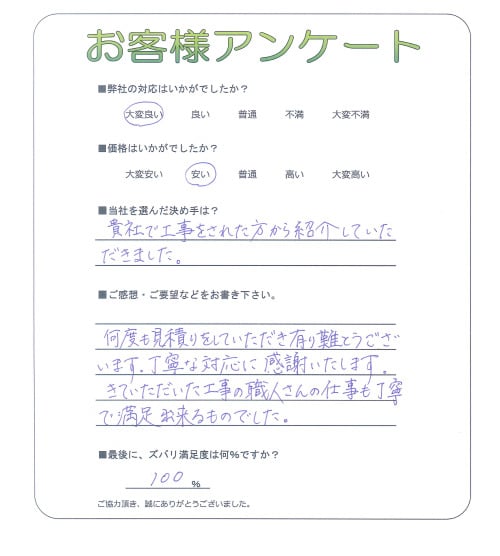 お客様アンケート
■弊社の対応はいかがでしたか？
大変良い 良い 普通 不満 大変不満
■価格はいかがでしたか？
大変安い 安い 普通 高い 大変高い
■当社を選んだ決め手は？
貴社で工事をされた方から紹介していた
だきました。
■ご感想・ご要望などをお書き下さい。
何度も見積りをしていただき有り難とうござ
います。丁寧な対応に感謝いたします。
きていただいた工事の職人さんの仕事も丁寧
で満足出来るものでした。
■最後に、ズバリ満足度は何%ですか？
100 %
ご協力頂き、誠にありがとうございました。